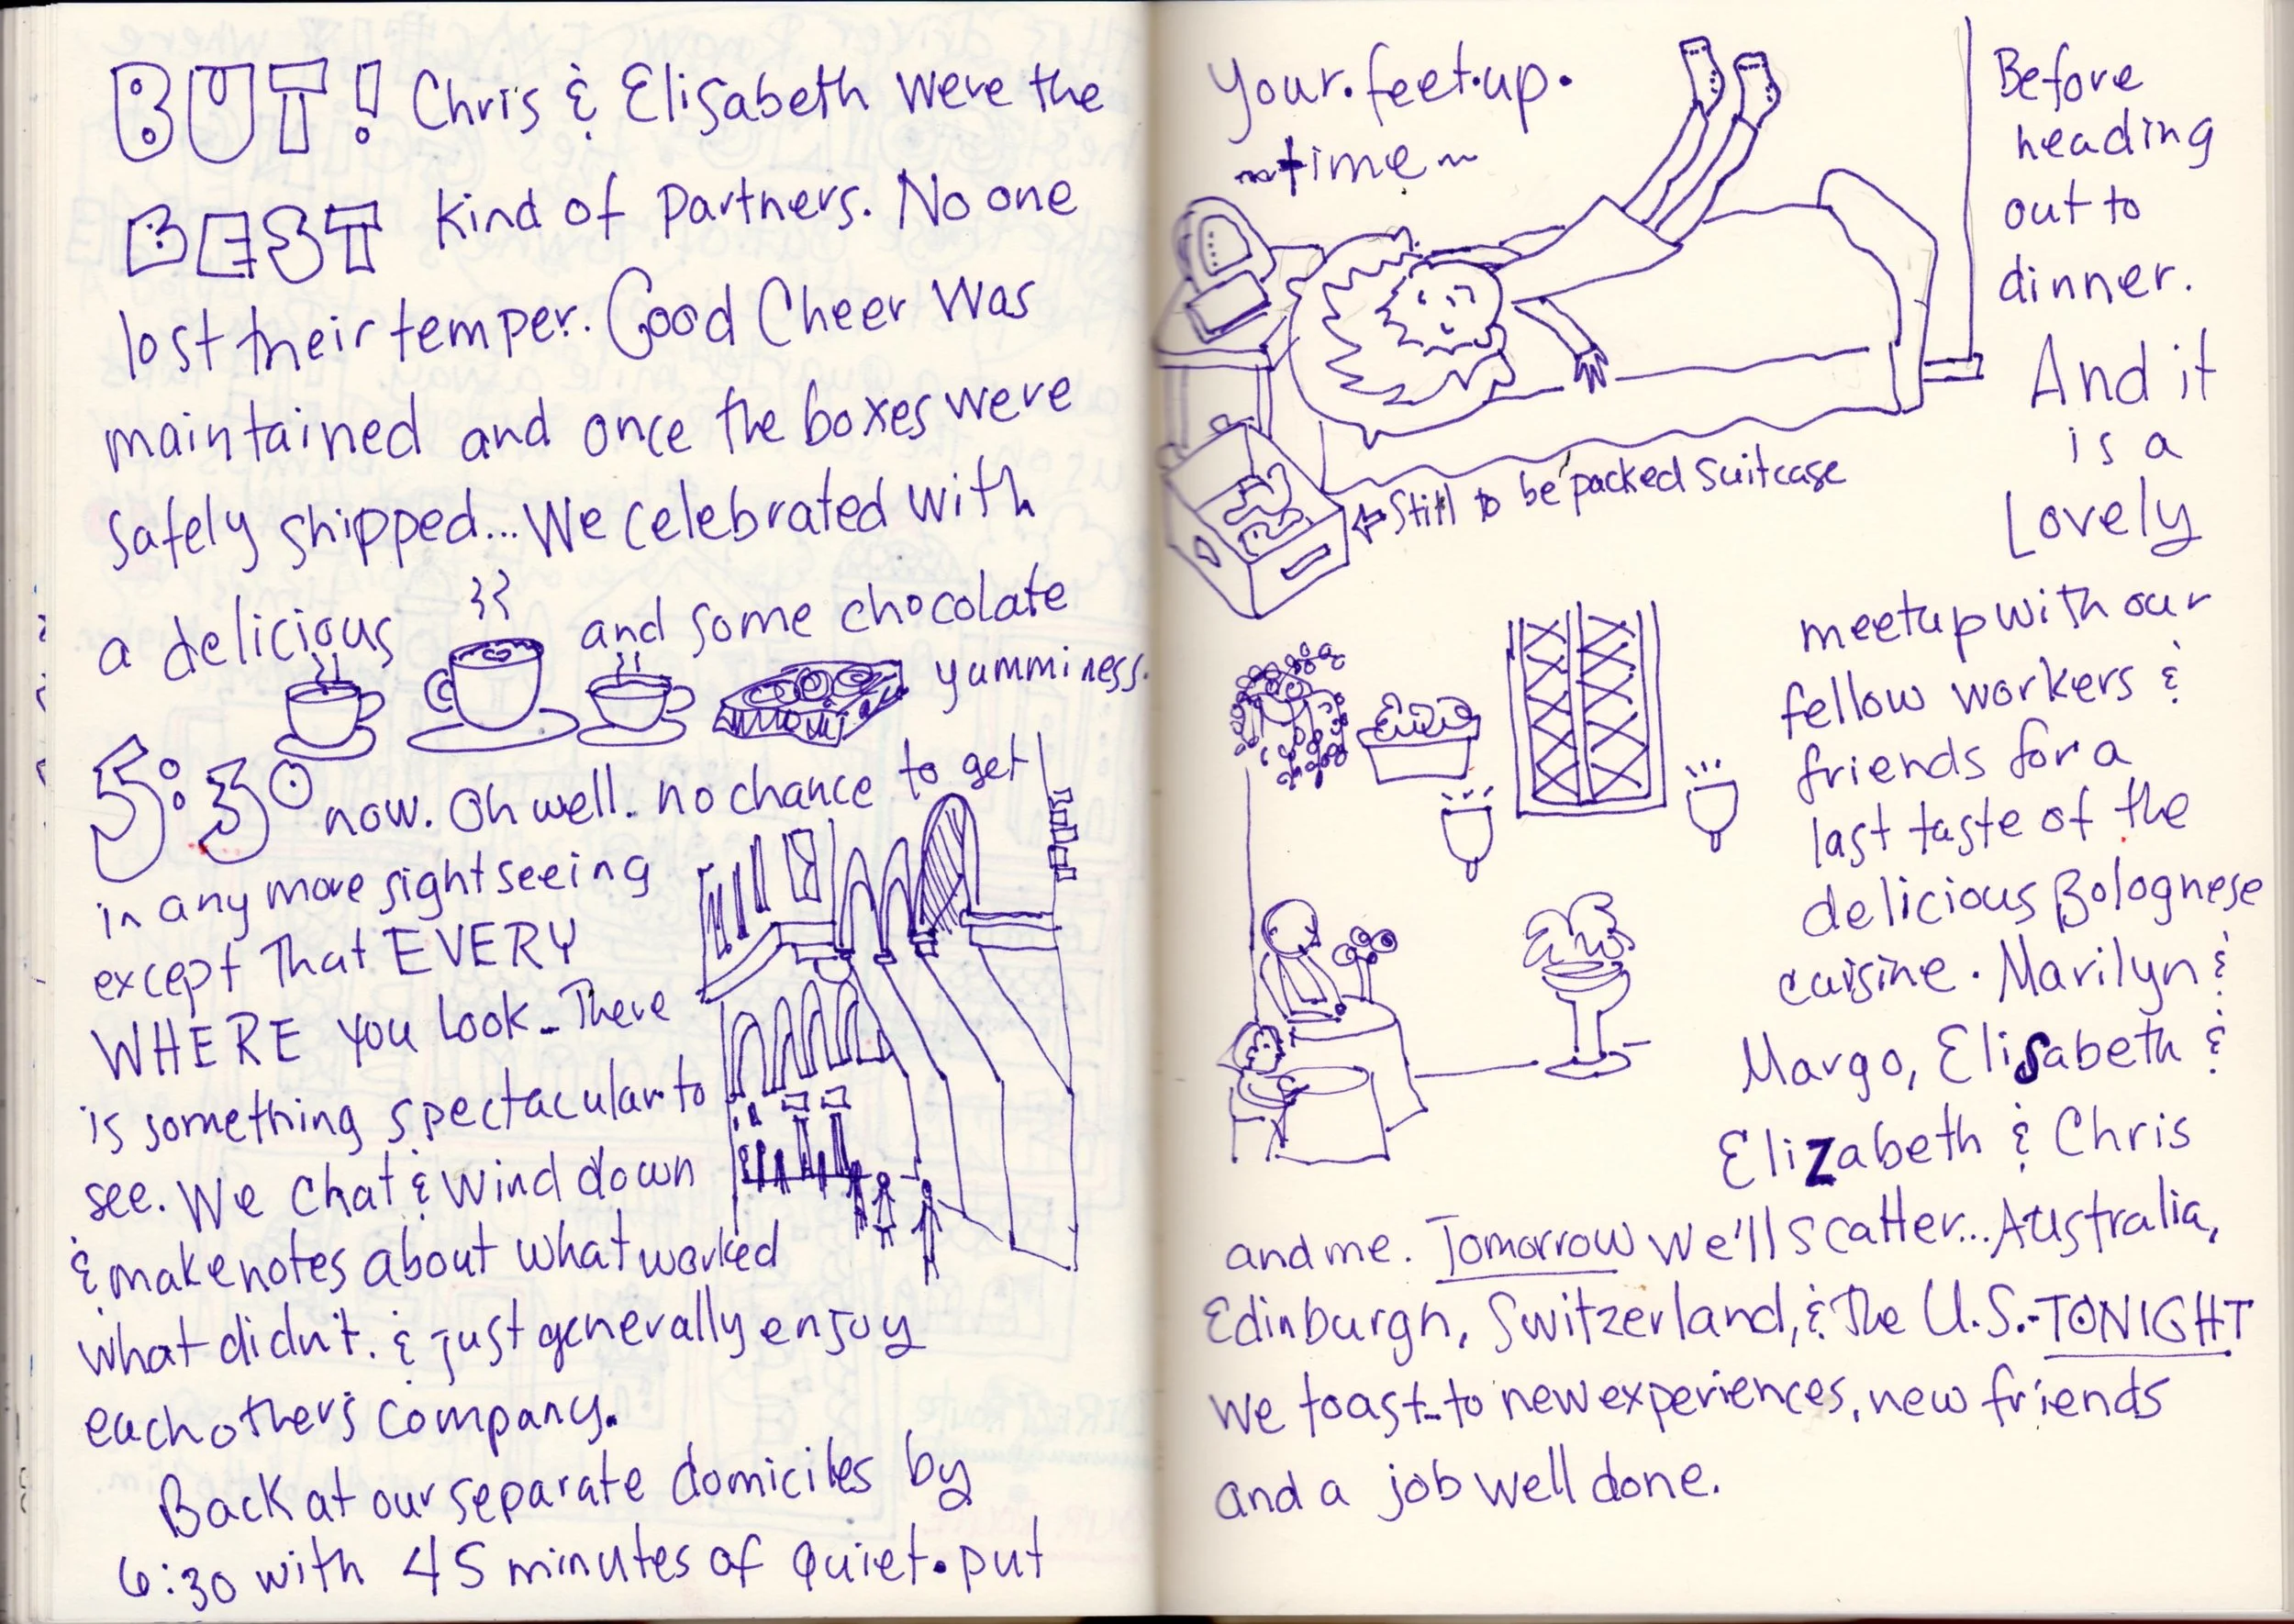 BUT! Chris & Elisabeth were the
BEST kind of partners. No one
lost their temper. Good Cheer was
maintained and once the boxes were
safely shipped... We celebrated with
a delicious and some chocolate
yumminess.
5:30 now. Oh well. no chance to get
in any more sightseeing
except that EVERY
WHERE you look - There
is something spectacular to
see. We chat & wind down
& make notes about what worked
what didn't. & just generally enjoy
each others company.
Back at our separate domiciles by
6:30 with 45 minutes of quiet. put
your.feet.up.
~time~
← Still to be packed suitcase
Before
heading
out to
dinner.
And it
is a
Lovely
meetup with our
fellow workers &
friends for a
last taste of the
delicious Bolognese
cuisine. Marilyn &
Margo, Elisabeth &
Elizabeth & Chris
and me. Tomorrow we'll scatter... Australia,
Edinburgh, Switzerland, & the U.S.- TONIGHT
we toast.. to new experiences, new friends
and a job well done.